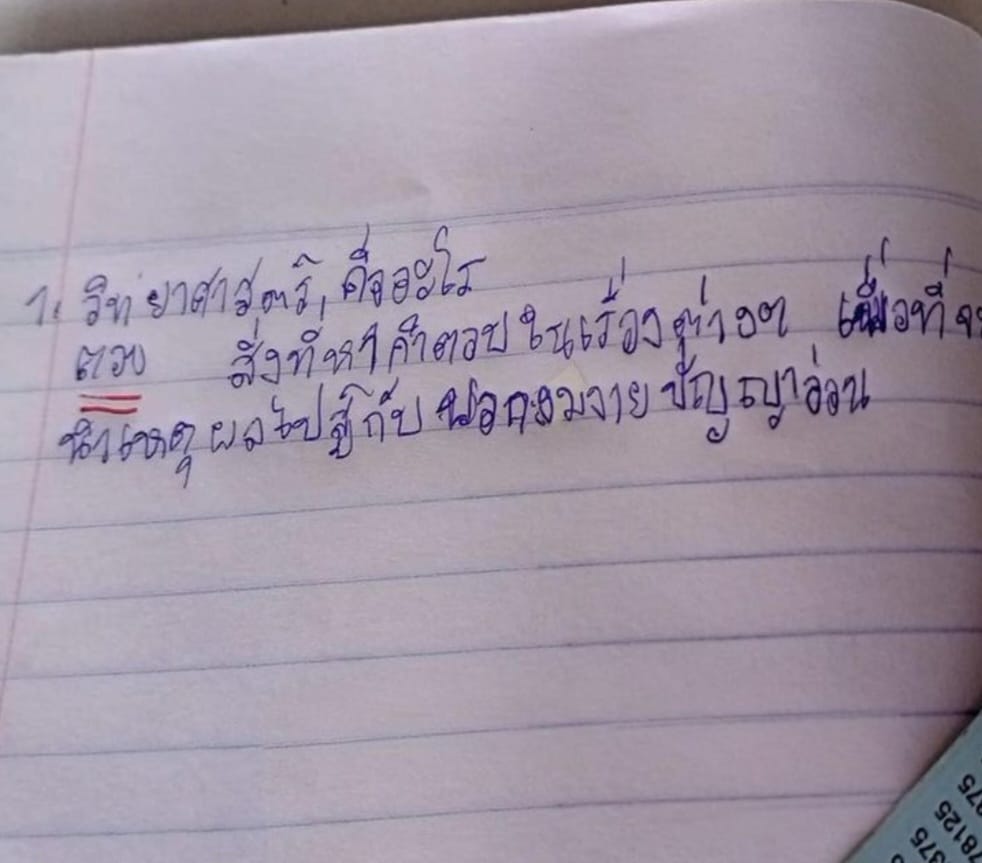 1. วิทยาศาสตร์, คืออะไร
ตอบ สิ่งที่หาคำตอบในเรื่องต่างๆ เพื่อที่จะ
นำเหตุผลไปสู้กับ พวกงมงายปัญญาอ่อน
78125